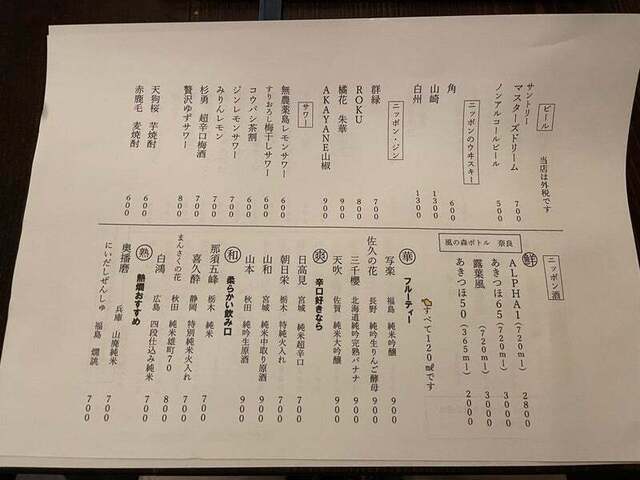 ビール
当店は外税です
サントリー
マスターズドリーム 700
ノンアルコールビール 500
ニッポンのウヰスキー
角 600
山崎 1300
白州 1300
ニッポン・ジン
群緑 700
ROKU 800
橘花 朱華 900
AKAYANE山椒 900
サワー
無農薬島レモンサワー 600
すりおろし梅干しサワー 600
コウバシ茶割 600
ジンレモンサワー 700
みりんレモン 700
杉勇 超辛口梅酒 700
贅沢ゆずサワー 800
天狗桜 芋焼酎 600
赤鹿毛 麦焼酎 600
ニッポン酒
鮮
風の森ボトル 奈良
ALPHA1(720ml) 2800
あきつほ65(720ml) 3000
露葉風(720ml) 3000
あきつほ50(365ml) 2000
すべて120mlです
華 フルーティー
写楽 福島 純米吟醸 900
佐久の花 長野 純吟生りんご酵母 900
三千櫻 北海道純吟完熟バナナ 900
天吹 佐賀 純米大吟醸 900
爽 辛口好きなら
日高見 宮城 純米超辛口 700
朝日栄 栃木 特純火入れ 700
山和 宮城 純米中取り原酒 900
山本 秋田 純吟生原酒 900
和 柔らかい飲み口
那須五峰 栃木 純米 700
喜久酔 静岡 特別純米火入れ 700
まんさくの花 秋田 純米雄町70 700
白鴻 広島 四段仕込み純米 800
熟 熱燗おすすめ
奥播磨 兵庫 山廃純米 700
にいだしぜんしゅ 福島 燗誂 700